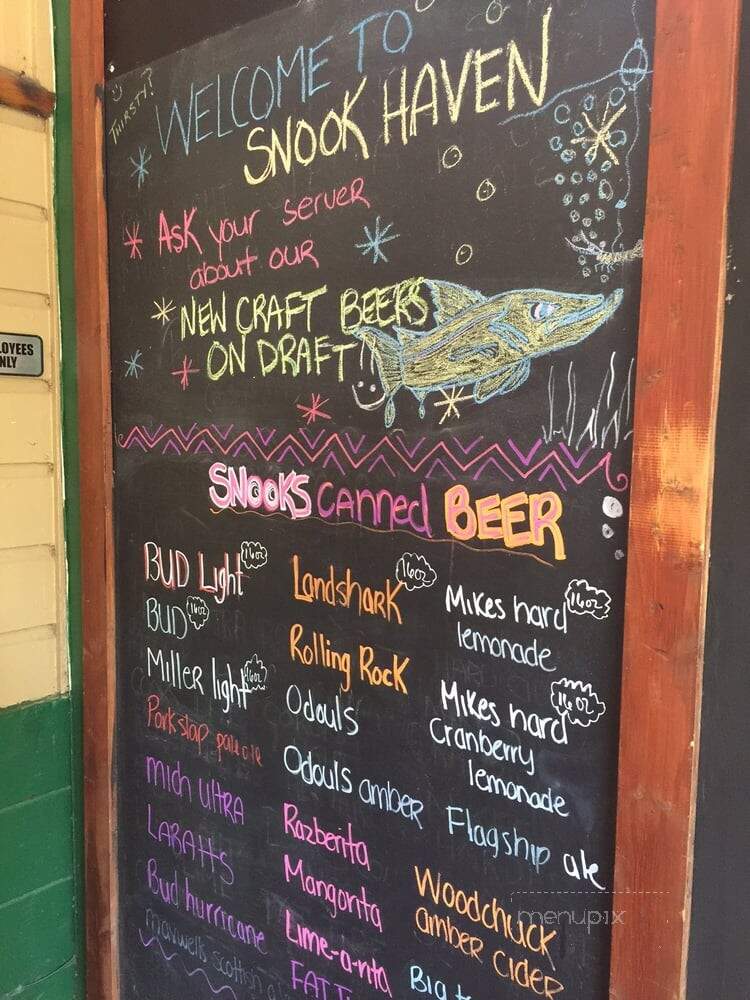 THIRSTY?
WELCOME TO
SNOOK HAVEN
ASK your server
about our
NEW CRAFT BEERS
ON DRAFT
OYEES
NLY
SNOOKS canned BEER
BUD Light 16oz
BUD 16oz
Miller light 16oz
Porkslap pale ale
mich ULTRA
LABATTS
Bud hurricane
maxwells scottish
Landshark 16oz
Rolling Rock
Odouls
Odouls amber
Razberita
Mangorita
Lime-a-rita
FAT
Mikes hard 16oz
lemonade
Mikes hard 16oz
Cranberry
lemonade
Flagship ale
Woodchuck
amber cider
Big
menupix